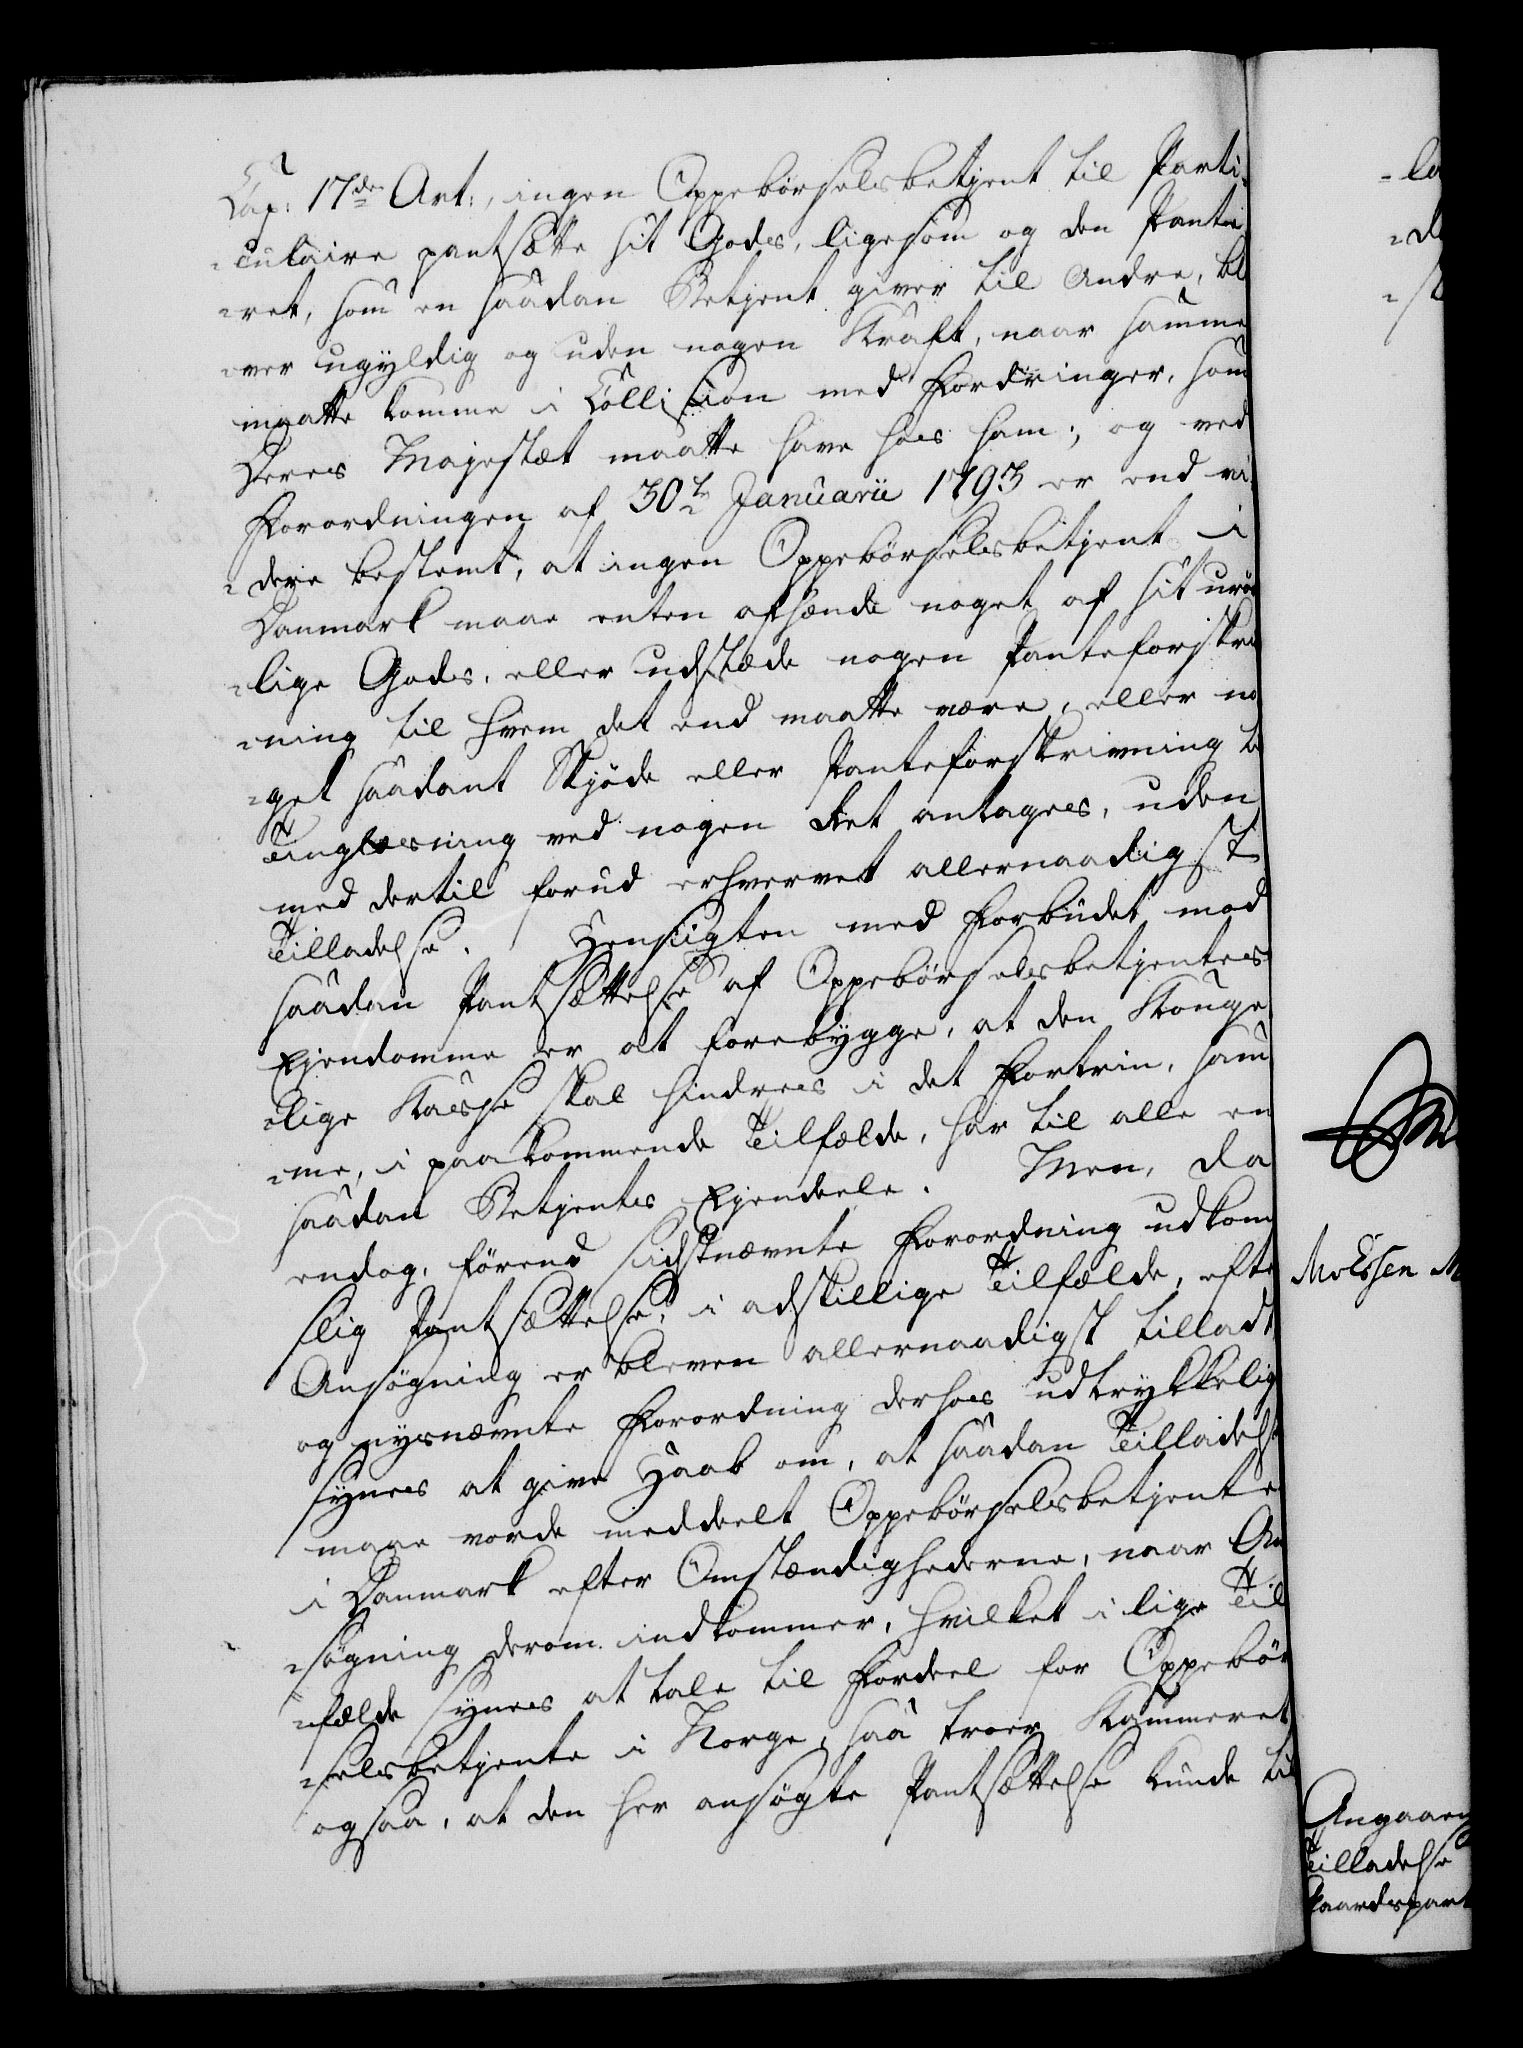 Cap: 17de Art:, ingen Oppebørselsbetjent til Parti-
culaire pantsætte sit Gods, ligesom og den Pante
ret, som en saadan Betjent giver til Andre, bli
ver ugyldig og uden nogen Kraft, naar samme
maatte komme i Collision med Fordringer, som
Deres Majestæt maatte have hos ham; og ved
Forordningen af 30te Januarii 1793 er end vi
dere bestemt, at ingen Oppebørselsbetjent i
Danmark maae enten afhænde noget af sit urør
lige Gods, eller udstæde nogen Panteforskriv
ning til hvem det end maatte være, eller no
get saadant Skjøde eller Panteforskrivning til
Tinglæsning ved nogen Ret antages, uden
med dertil forud erhvervet allernaadigst
Tilladelse. Hensigten med Forbudet mod
saadan Pantsættelse af Oppebørselsbetjentes
Ejendomme er at forebygge, at den Konge
lige Kasse skal hindres i det Fortrin, sam
me, i paakommende Tilfælde, har til alle en
saadan Betjentes Ejendeele. Men, da
endog, førend sidstnævnte Forordning udkom
slig Pantsættelse, i adskillige Tilfælde, efter
Ansøgning er bleven allernaadigst tilladt,
og nysnævnte Forordning derhos udtrykkelig
synes at give Haab om, at saadan Tilladelse
maae vorde meddeelt Oppebørselsbetjente
i Danmark efter Omstændighederne, naar An
søgning derom indkommer, hvilket i lige Til
fælde synes at tale til Fordeel for Oppebør
selsbetjente i Norge, saa troer Kammeret
ogsaa, at den her ansøgte Pantsættelse kunde til
Angaaen
Tilladelse